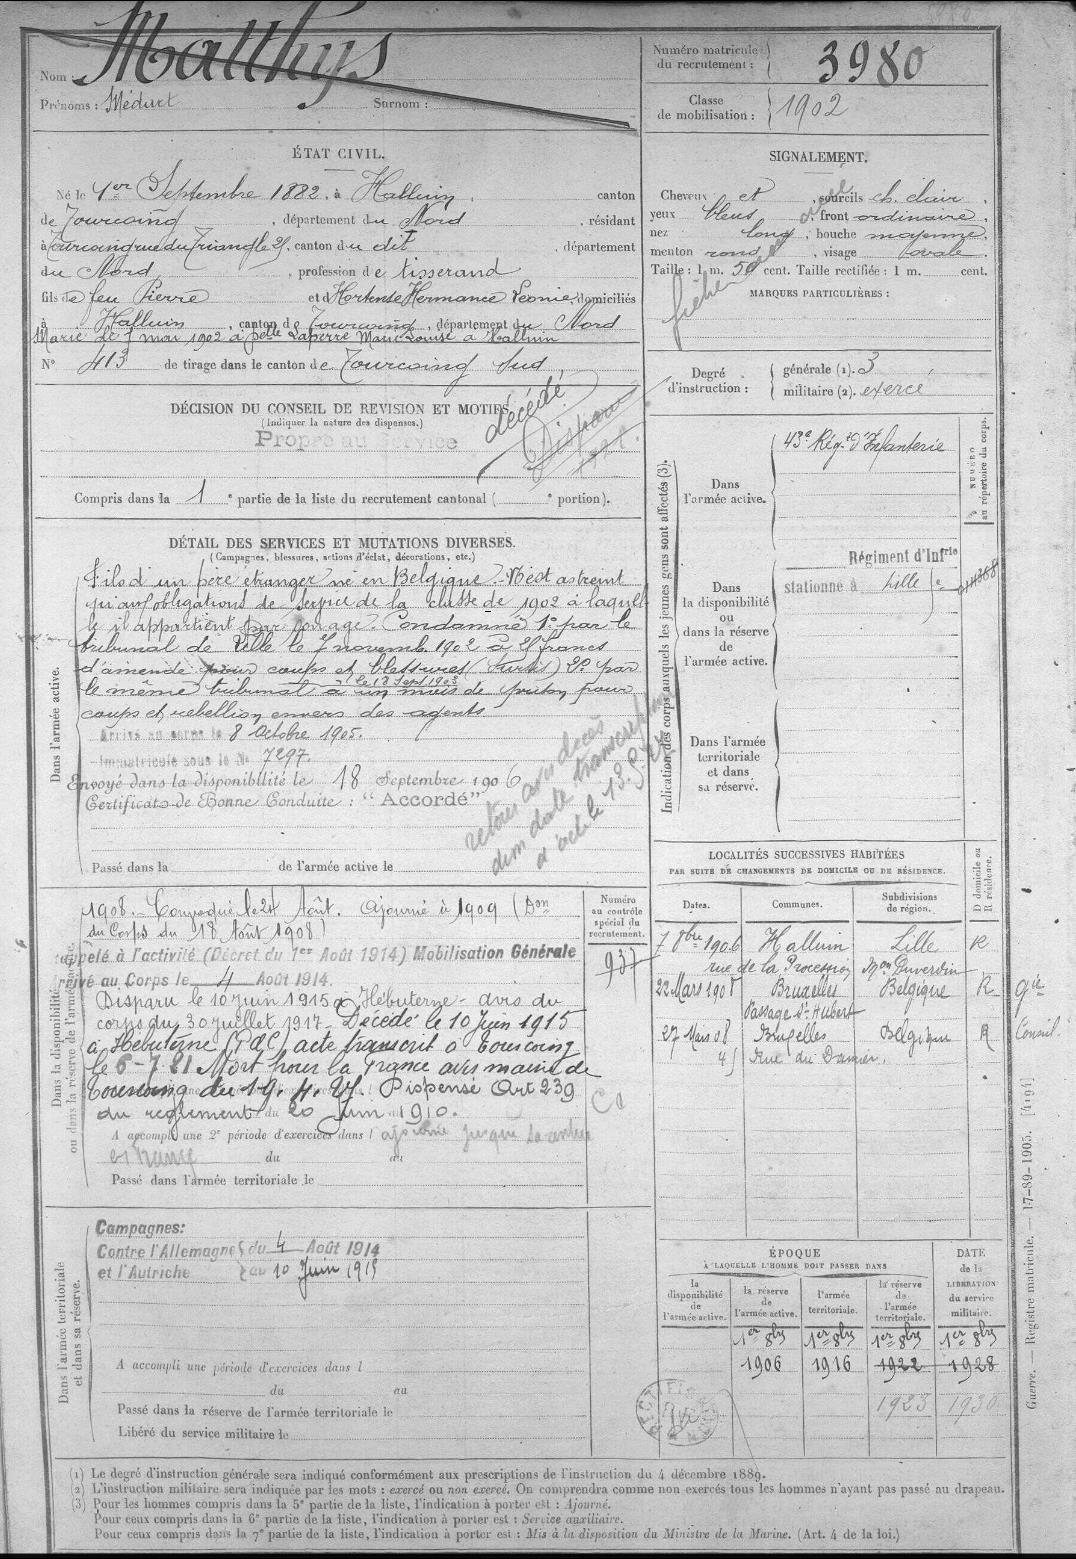 Nom : Matthys
Prénoms : Médart Surnom :
Numéro matricule du recrutement : 3980
Classe de mobilisation : 1902
ÉTAT CIVIL.
Né le 1er Septembre 1882, à Halluin, canton
de Tourcoing, département du Nord, résidant
à Tourcoing rue du Triangle 25, canton du dit, département
du Nord, profession de tisserand
fils de feu Pierre et d'Hortense Hermance Léonie domiciliés
à Halluin, canton de Tourcoing, département du Nord
Marié le 7 mai 1902 à delle Laperre Marie Louise à Halluin
N° 413 de tirage dans le canton de Tourcoing Sud
SIGNALEMENT.
Cheveux et sourcils ch. clair,
yeux bleus, front ordinaire,
nez long, bouche moyenne,
menton rond, visage ovale.
Taille : 1 m. 59 cent. Taille rectifiée : 1 m. cent.
MARQUES PARTICULIÈRES :
Degré d'instruction : générale (1). 3
militaire (2). exercé
DÉCISION DU CONSEIL DE REVISION ET MOTIFS.
(Indiquer la nature des dispenses.)
Propre au Service
décédé
Disparu
Compris dans la 1e partie de la liste du recrutement cantonal ( e portion).
DÉTAIL DES SERVICES ET MUTATIONS DIVERSES.
(Campagnes, blessures, actions d'éclat, décorations, etc.)
Dans l'armée active.
Fils d'un père étranger né en Belgique. N'est astreint
qu'aux obligations de service de la classe de 1902 à laquel-
le il appartient par l'âge. Condamné 1° par le
tribunal de Lille le 7 novemb. 1902 à 25 francs
d'amende pour coups et blessures (Sursis) 2° par
le même tribunal le 18 Sept 1903 à un mois de prison pour
coups et rebellion envers des agents
Arrivé au corps le 8 Octobre 1905.
Immatriculé sous le N° 7297.
Envoyé dans la disponibilité le 18 Septembre 1906
Certificat de Bonne Conduite : "Accordé"
retour avis décès
d'acte le 13.5.27
Passé dans la de l'armée active le
Indication des corps auxquels les jeunes gens sont affectés (3).
Dans l'armée active.
43e Régt d'Infanterie
NUMÉRO au répertoire du corps.
Dans la disponibilité ou dans la réserve de l'armée active.
Régiment d'Infrie
stationné à Lille
Dans l'armée territoriale et dans sa réserve.
LOCALITÉS SUCCESSIVES HABITÉES
PAR SUITE DE CHANGEMENTS DE DOMICILE OU DE RÉSIDENCE.
Dates. Communes. Subdivisions de région. D domicile ou R résidence.
7 8bre 1906 Halluin Lille R
rue de la Procession Mon Duverdin
22 Mars 1908 Bruxelles Belgique R
Passage St Hubert
27 Mars 08 Bruxelles Belgique R
45 Rue du Damier.
Consul
Dans la disponibilité ou dans la réserve de l'armée active.
Numéro au contrôle spécial du recrutement.
937
1908. Convoqué le 24 Août. Ajourné à 1909 (Don
du Corps du 18 Août 1908)
Rappelé à l'activité (Décret du 1er Août 1914) Mobilisation Générale
Arrivé au Corps le 4 Août 1914.
Disparu le 10 juin 1915 à Hébuterne - avis du
corps du 30 juillet 1917 - Décédé le 10 Juin 1915
à Hébuterne (P.d.C) acte transcrit à Tourcoing
le 6-7-21 Mort pour la France avis maire de
Tourcoing du 19.4.27. Dispensé Art 239
du règlement du 20 Juin 1910.
A accompli une 2e période d'exercices dans l
du au
Passé dans l'armée territoriale le
Dans l'armée territoriale et dans sa réserve.
Campagnes:
Contre l'Allemagne du 4 Août 1914
et l'Autriche au 10 Juin 1915
A accompli une période d'exercices dans l
du au
Passé dans la réserve de l'armée territoriale le
Libéré du service militaire le
ÉPOQUE
À LAQUELLE L'HOMME DOIT PASSER DANS
la disponibilité de l'armée active. la réserve de l'armée active. l'armée territoriale. la réserve de l'armée territoriale. DATE de la LIBÉRATION du service militaire.
1er 8bre 1er 8bre 1er 8bre 1er 8bre
1906 1916 1922 1928
1923 1930
Guerre. — Registre matricule. — 17-89-1905. [4194]
(1) Le degré d'instruction générale sera indiqué conformément aux prescriptions de l'instruction du 4 décembre 1889.
(2) L'instruction militaire sera indiquée par les mots : exercé ou non exercé. On comprendra comme non exercés tous les hommes n'ayant pas passé au drapeau.
(3) Pour les hommes compris dans la 5e partie de la liste, l'indication à porter est : Ajourné.
Pour ceux compris dans la 6e partie de la liste, l'indication à porter est : Service auxiliaire.
Pour ceux compris dans la 7e partie de la liste, l'indication à porter est : Mis à la disposition du Ministre de la Marine. (Art. 4 de la loi.)